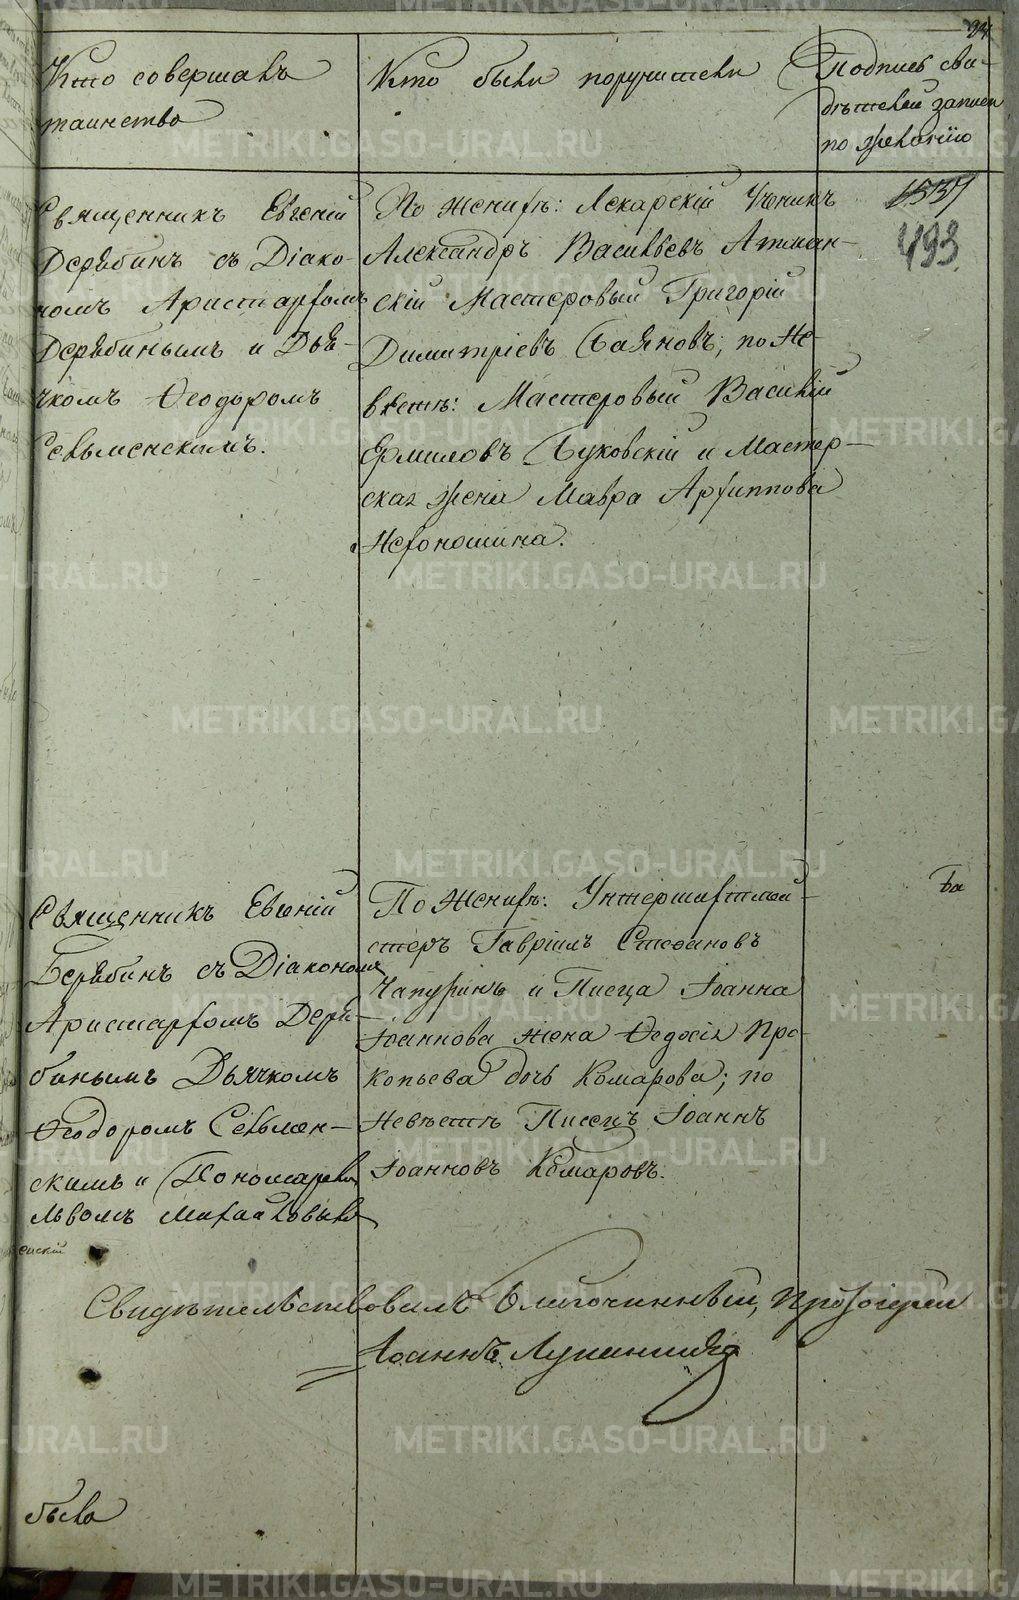 Кто совершалъ
таинство
Кто были поручители
Подпись сви-
дѣтелей записи
по желанію
Священникъ Евгеній
Дерябинъ съ Діако-
номъ Аристархомъ
Дерябинымъ и Дья-
чкомъ Ѳеодоромъ
Сельменскимъ.
По женихѣ: Лекарскій Ученикъ
Александръ Васильевъ Атман-
скій Мастеровый Григорій
Димитріевъ Баяновъ; по Не-
вѣстѣ: Мастеровый Василій
Ермиловъ Буковскій и Мастер-
ская жена Мавра Архиппова
Нехоношина.
1537
493
Священникъ Евгеній
Дерябинъ съ Діакономъ
Аристархомъ Деря-
бинымъ Дьячкомъ
Ѳеодоромъ Сельмен-
скимъ и Пономаремъ
Львомъ Михайловымъ
По Женихѣ: Унтершихтмей-
стеръ Гавріилъ Стефановъ
Чапуринъ и Писца Іоанна
Іоаннова жена Ѳедосія Про-
копьева дочь Комарова; по
Невѣстѣ Писецъ Іоаннъ
Іоанновъ Комаровъ.
Свидѣтельствовалъ Благочинный, Протоіерей
Іоаннъ
было
METRIKI.GASO-URAL.RU